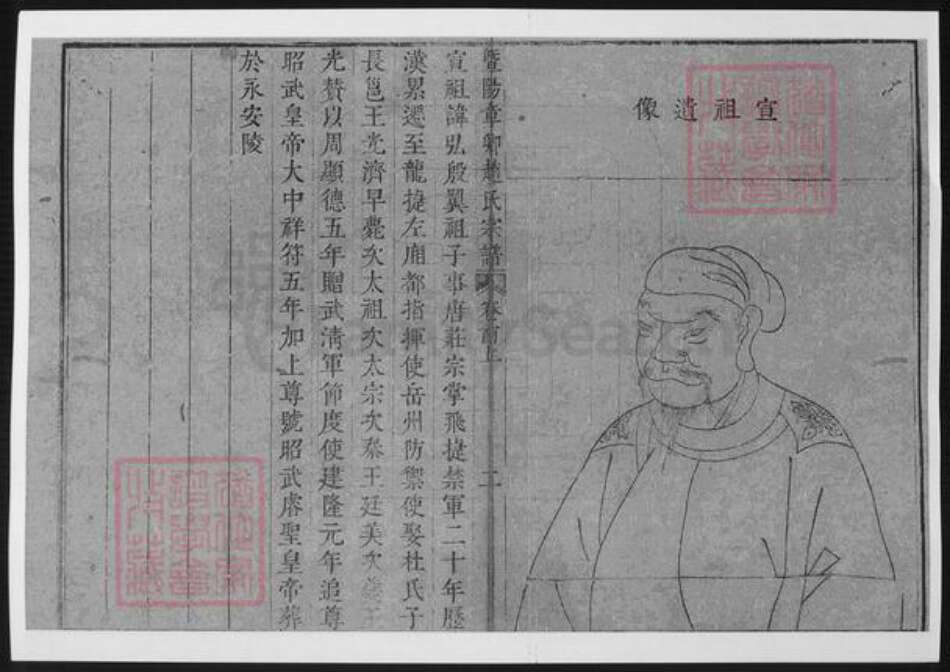 宣祖遺像
暨陽章卿趙氏宗譜 卷首上 二
宣祖諱弘殷翼祖子事唐莊宗掌飛捷禁軍二十年歷
漢累遷至龍捷左廂都指揮使岳州防禦使娶杜氏子
長邕王光濟早薨次太祖次太宗次秦王廷美次夔王
光贊以周顯德五年贈武清軍節度使建隆元年追尊
昭武皇帝大中祥符五年加上尊號昭武睿聖皇帝葬
於永安陵